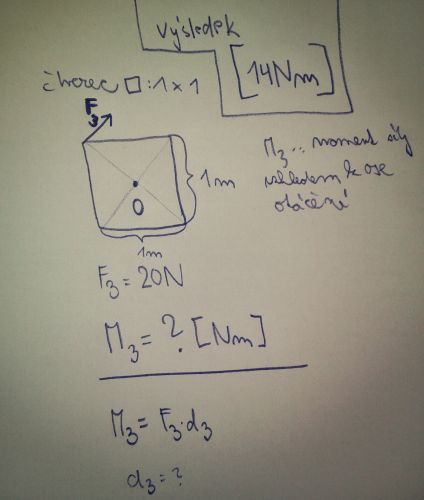 výsledek
[14Nm]
čtverec □:1×1
F3
M3 .. moment síly
vzhledem k ose
otáčení
1m
O
1m
F3 = 20N
M3 = ? [Nm]
M3 = F3·d3
d3 = ?